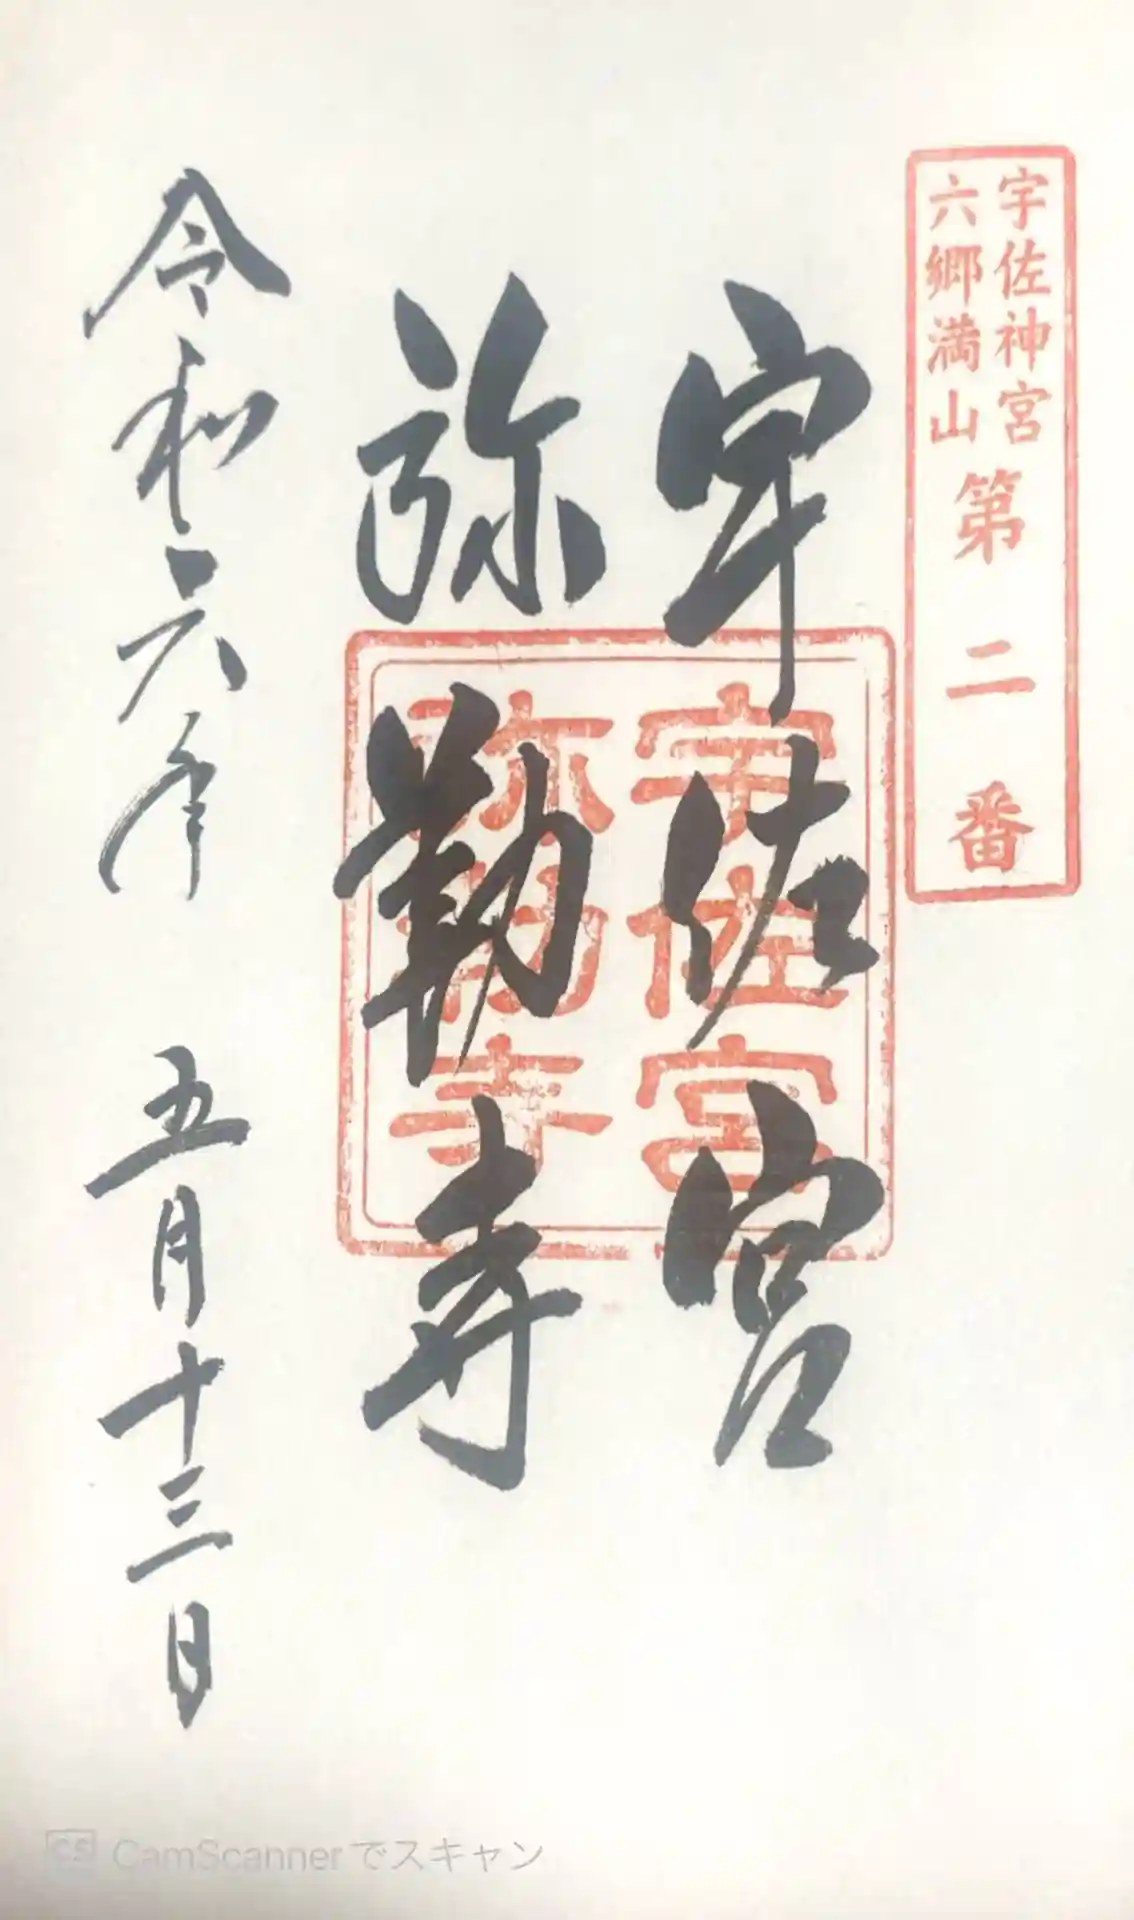 宇佐神宮
六郷満山
第二番
宇佐宮
弥勒寺
宇佐宮
弥勒寺
令和六年 五月十三日
CS CamScannerでスキャン